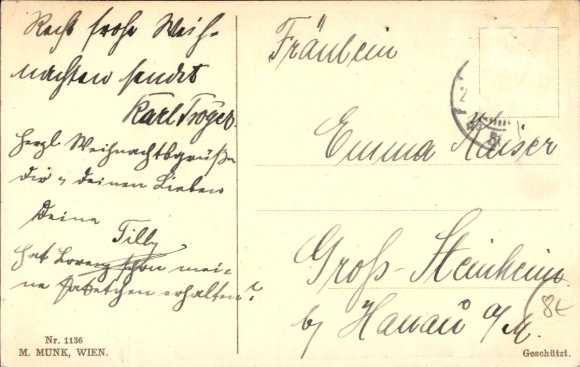 Recht frohe Weih-
nachten sendet
Karl Tröger.
Herzl Weihnachtsgrüße
dir u deinen Lieben
Deine
Tilly
hat Lorenz schon mei-
ne erhalten?
Nr. 1136
M. MUNK, WIEN.
Fräulein
Emma Kaiser
Groß-Steinheim
b/ Hanau a/M.
Geschützt.